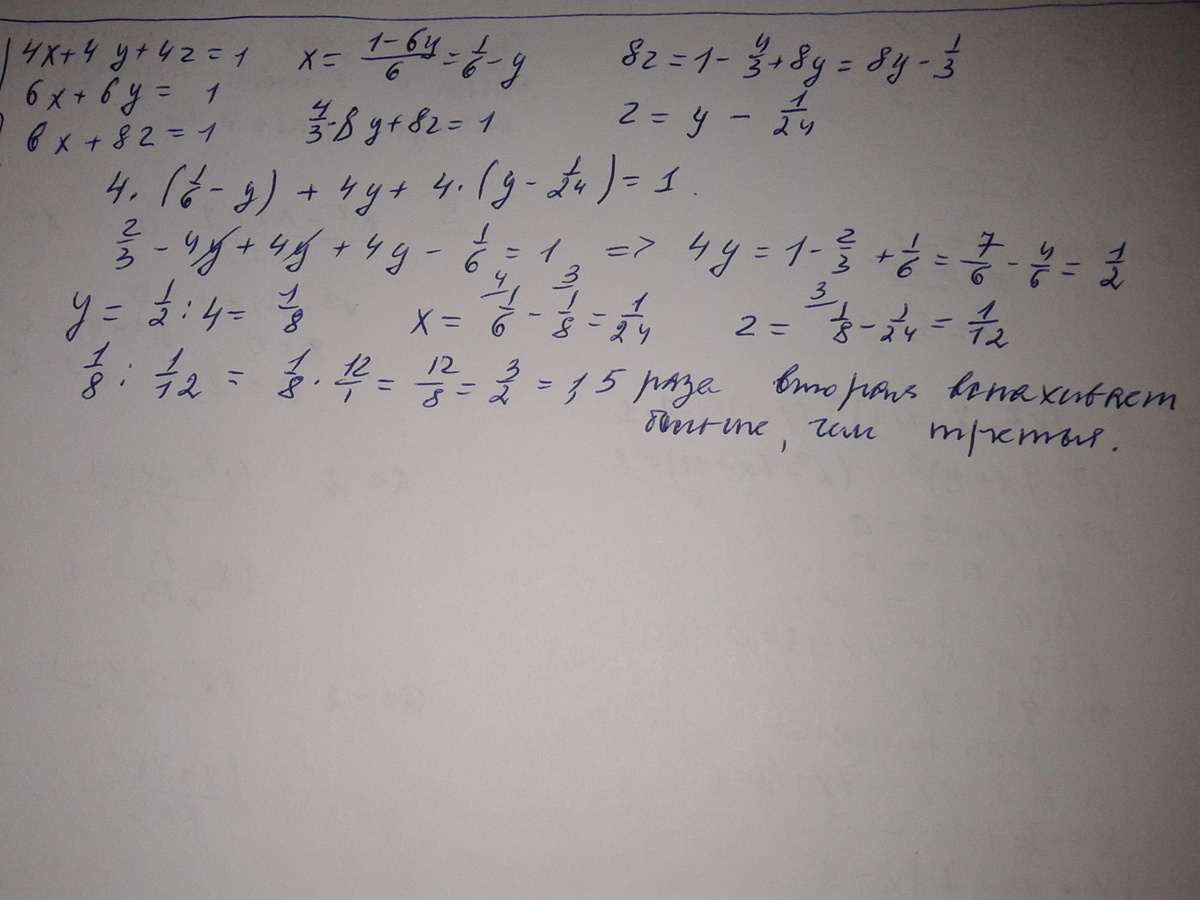 4x+4y+4z=1   x= (1-6y)/6 = 1/6 - y   8z=1- 4/3 +8y= 8y- 1/3
6x+6y= 1
8x+8z=1   4/3 - 8y+8z= 1   z= y - 1/24
4·(1/6 - y) + 4y+ 4·(y- 1/24)=1.
2/3 - 4y+4y+4y- 1/6 =1 => 4y=1- 2/3 + 1/6 = 7/6 - 4/6 = 1/2
y= 1/2 :4= 1/8   x= 4 1/6 - 3 1/8 = 1/24   z= 3 1/8 - 1/24 = 1/12
1/8 : 1/12 = 1/8 · 12/1 = 12/8 = 3/2 =1,5 раза вторая вспахивает
больше, чем третья.